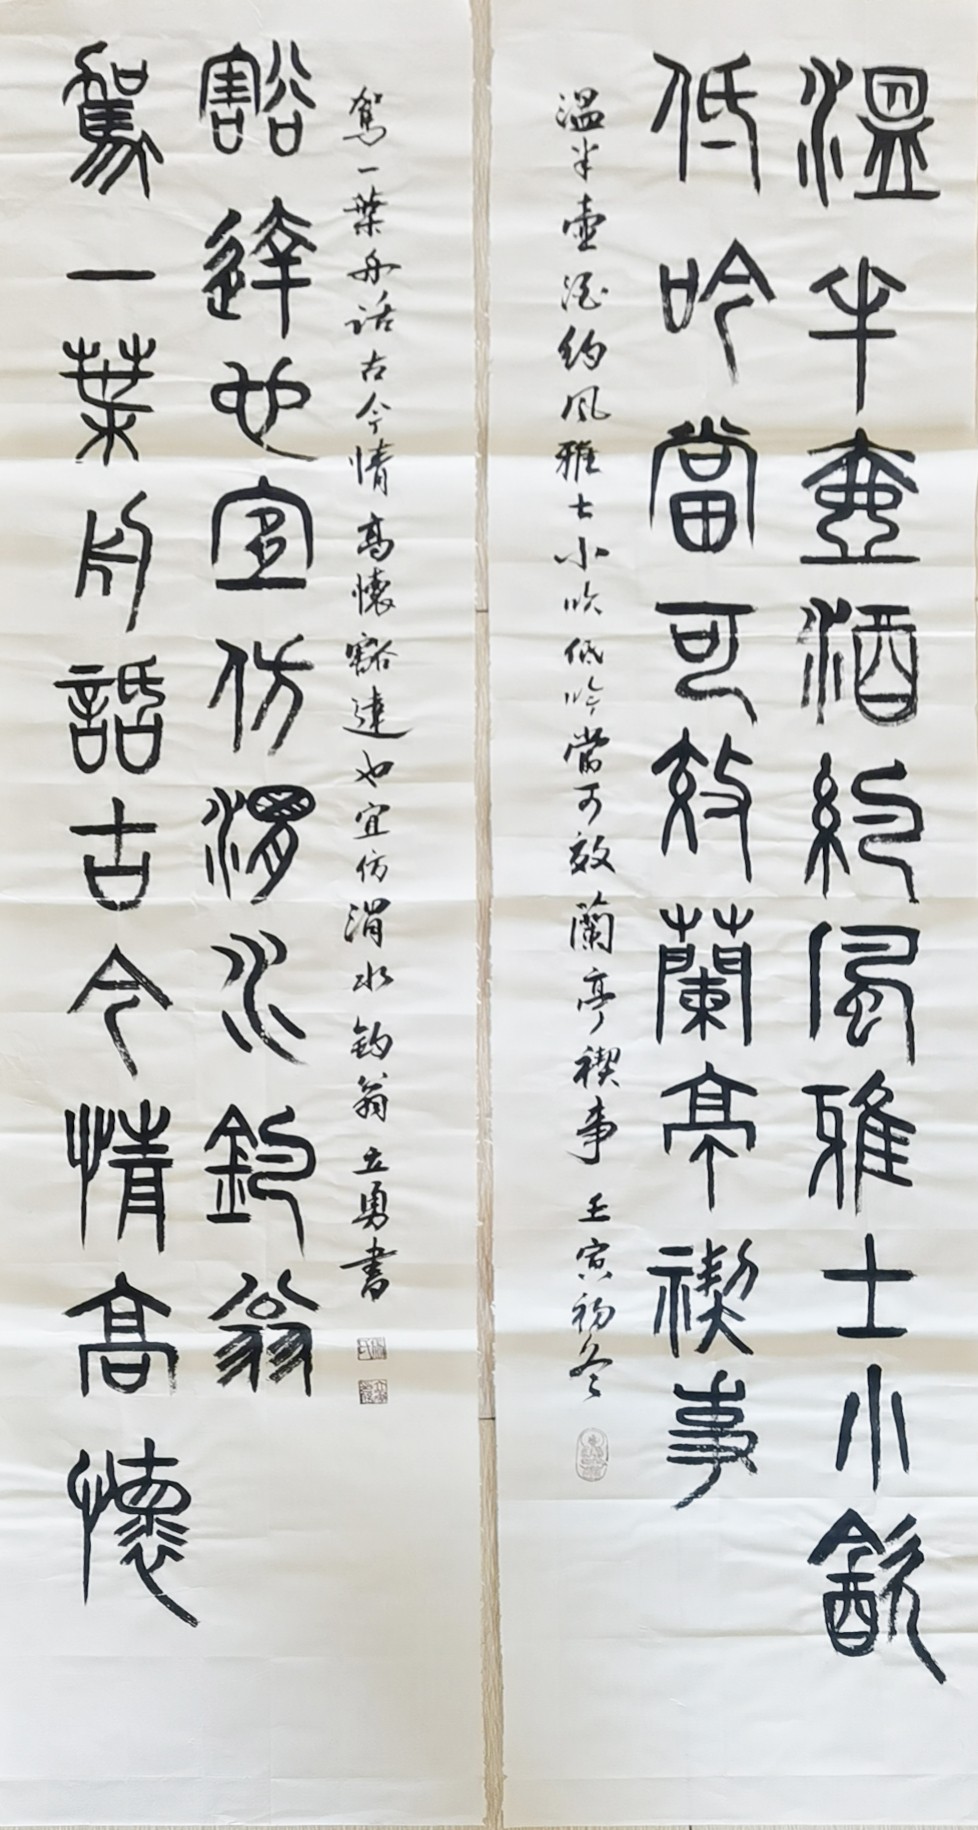 溫半壺酒約風雅士小飲
低吟當可效蘭亭禊事
溫半壺酒約風雅士小飲低吟當可效蘭亭禊事 壬寅初冬
駕一葉舟話古今情高懷
豁達也宜仿渭水釣翁
駕一葉舟話古今情高懷豁達也宜仿渭水釣翁 立勇書